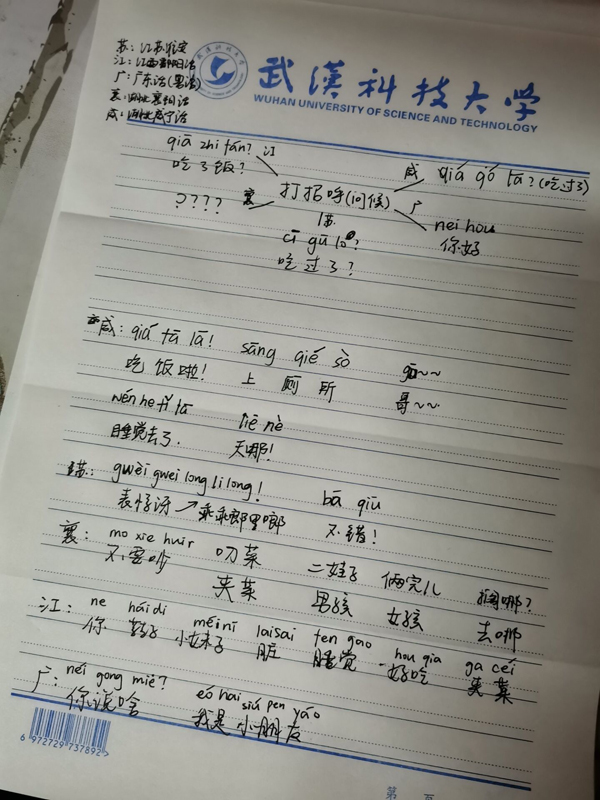 苏：江苏淮安
江：江西鄱阳话
广：广东话(粤话)
襄：湖北襄阳话
咸：湖北咸宁话
武汉科技大学
武漢科技大学
WUHAN UNIVERSITY OF SCIENCE AND TECHNOLOGY
qiā zhi fán? 江
吃了饭?
咸 qiá gó lā? (吃过了)
打招呼(问候)
???? 襄
广 nei hou
你好
苏
cī gū lo?
吃过了?
咸: qiá fā lā! sāng qié sò gū~~
吃饭啦! 上厕所 哥~~
睡觉去了. 天哪!
苏: gwèi gwei long li long! bā qiū
表惊讶 → 乖乖郎里啷 不错!
襄: mo xie huir 叨菜 二娃子 俩完儿
不要吵 夹菜 男孩 女孩 去哪
江: ne háidi méinī laisai fen gao hou qia ga cei
你 孩子 小妹子 脏 睡觉 好吃 夹菜
广: neí gong miē? eó hai siú pen yáo
你说啥 我是小朋友
6 972729 737892>
第 页